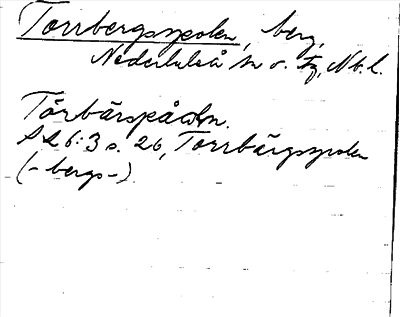 Torrbergsspolen, berg,
Nederluleå sn o. tg, Nb. l.
Törbärspåoln.
SL 6:3 s. 26, Torrbärgsspolen
(-bergs-)